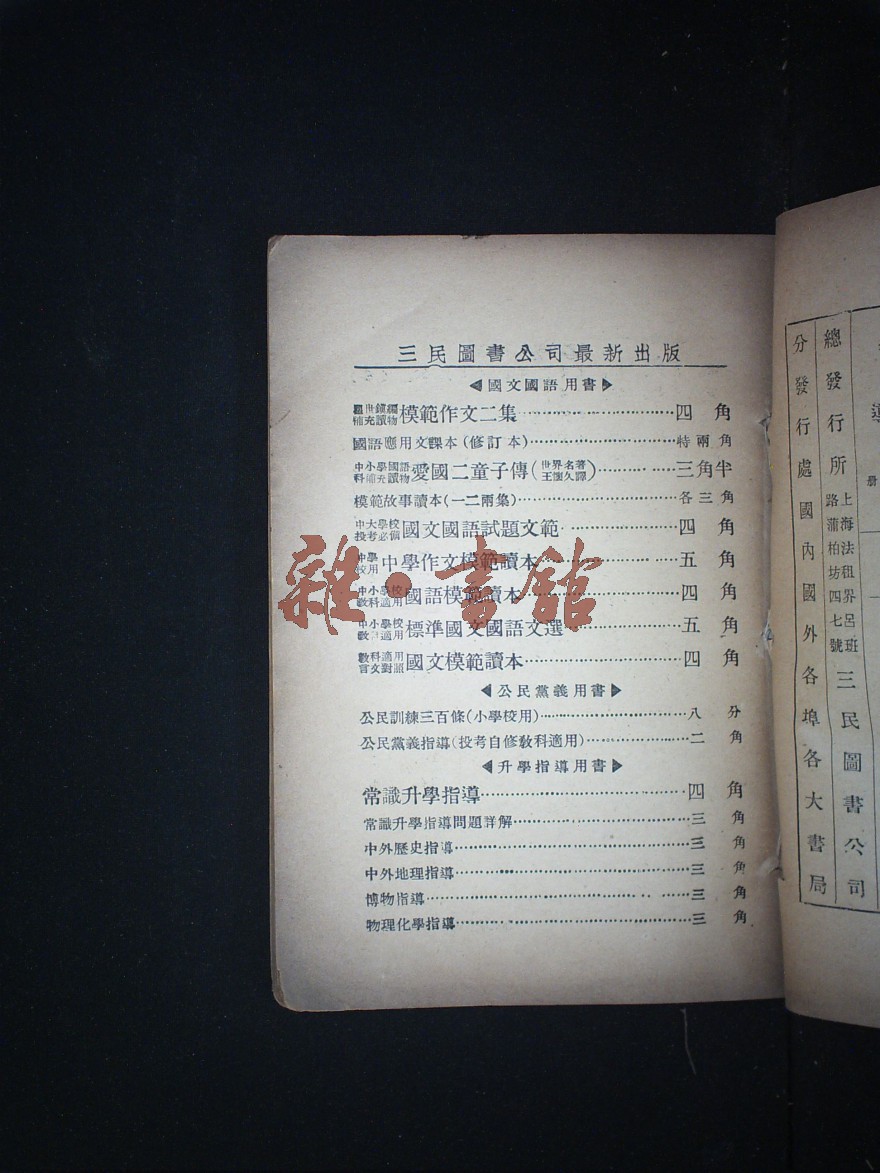 三民圖書公司最新出版
◀國文國語用書▶
羅世鏞編 補充讀物 模範作文二集 四角
國語應用文課本(修訂本) 特兩角
中小學國語科補充讀物 愛國二童子傳(世界名著 王懷久譯) 三角半
模範故事讀本(一二兩集) 各三角
中大學校投考必備 國文國語試題文範 四角
中學校用 中學作文模範讀本 五角
中小學校教科適用 國語模範讀本 四角
中小學校適用 標準國文國語文選 五角
教科適用 言文對照 國文模範讀本 四角
◀公民黨義用書▶
公民訓練三百條(小學校用) 八分
公民黨義指導(投考自修教科適用) 二角
◀升學指導用書▶
常識升學指導 四角
常識升學指導問題詳解 三角
中外歷史指導 三角
中外地理指導 三角
博物指導 三角
物理化學指導 三角
冊
總發行所 上海法租界呂班路蒲柏坊四七號 三民圖書公司
分發行處國內國外各埠各大書局
雜·書館